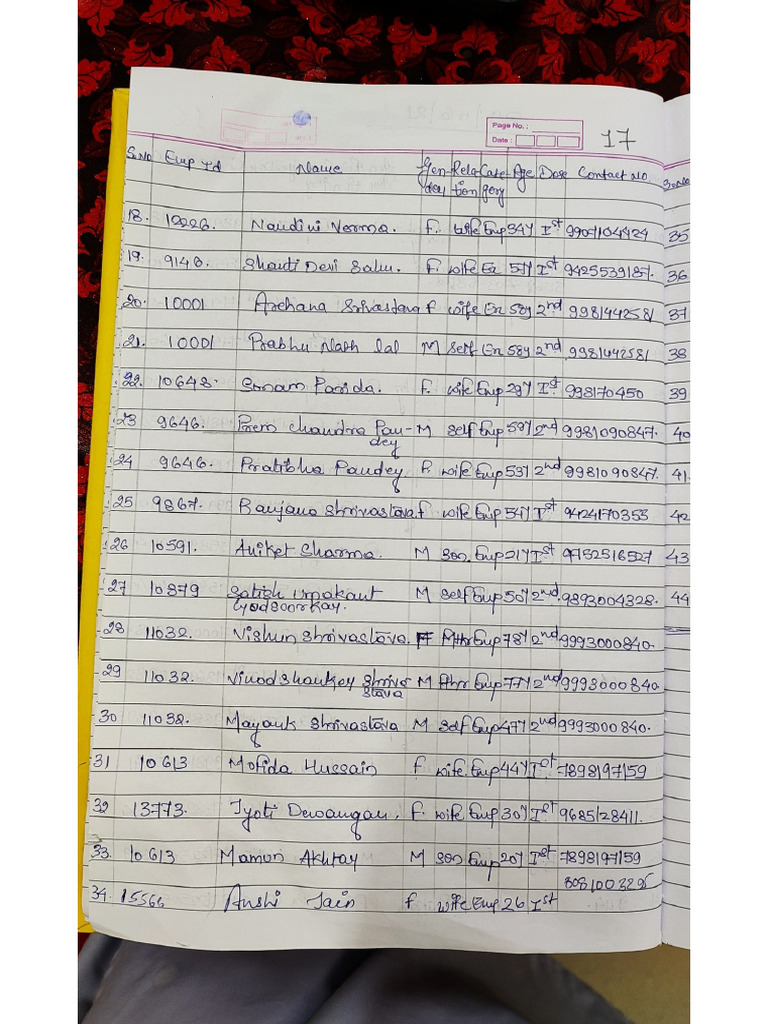 Page No. :
Date :
17
S.No Emp Id Name Gen- Rela- Cate- Age Dose Contact No S.No
der tion gory
18. 12226. Nandini Verma. F. wife Emp 34y Ist 9907104424 35
19. 9148. Shanti Devi Sahu. F. wife Ex 57y Ist 9425539187. 36
20. 10001 Archana Srivastava f wife Ex 58y 2nd 9981442581 37
21. 10001 Prabhu Nath Lal M Self Ex 58y 2nd 9981442581 38
22. 10648. Sonam Parida. F. wife Emp 29y Ist 998170450 39
23 9646. Prem Chandra Pan- M self Emp 59y 2nd 9981090847. 40
dey
24 9646. Pratibha Pandey F. wife Emp 53y 2nd 9981090847. 41.
25 9867. Ranjana Shrivastava f wife Emp 54y Ist 9424170353 42
26 10591. Aniket Sharma. M son. Emp 21y Ist 9752516527 43
27 10879 Satish Umakant M self Emp 50y 2nd 9893004328. 44
28 11032. Vishun Shrivastava. F Mthr Emp 78y 2nd 9993000840.
29 11032. Vinod Shankey Shriva M fthr Emp 77y 2nd 9993000840.
stava
30 11032. Mayank Shrivastava M self Emp 47y 2nd 9993000840.
31 10613 Mofida Hussain f wife. Emp 44y Ist 7898197159
32 13773. Jyoti Dewangan. F. wife Emp 30y Ist 9685128411.
33. 10613 Mamun Akhtay M son Emp 20y Ist 7898197159
34. 15566 Anshi Jain f wife Emp 26 Ist